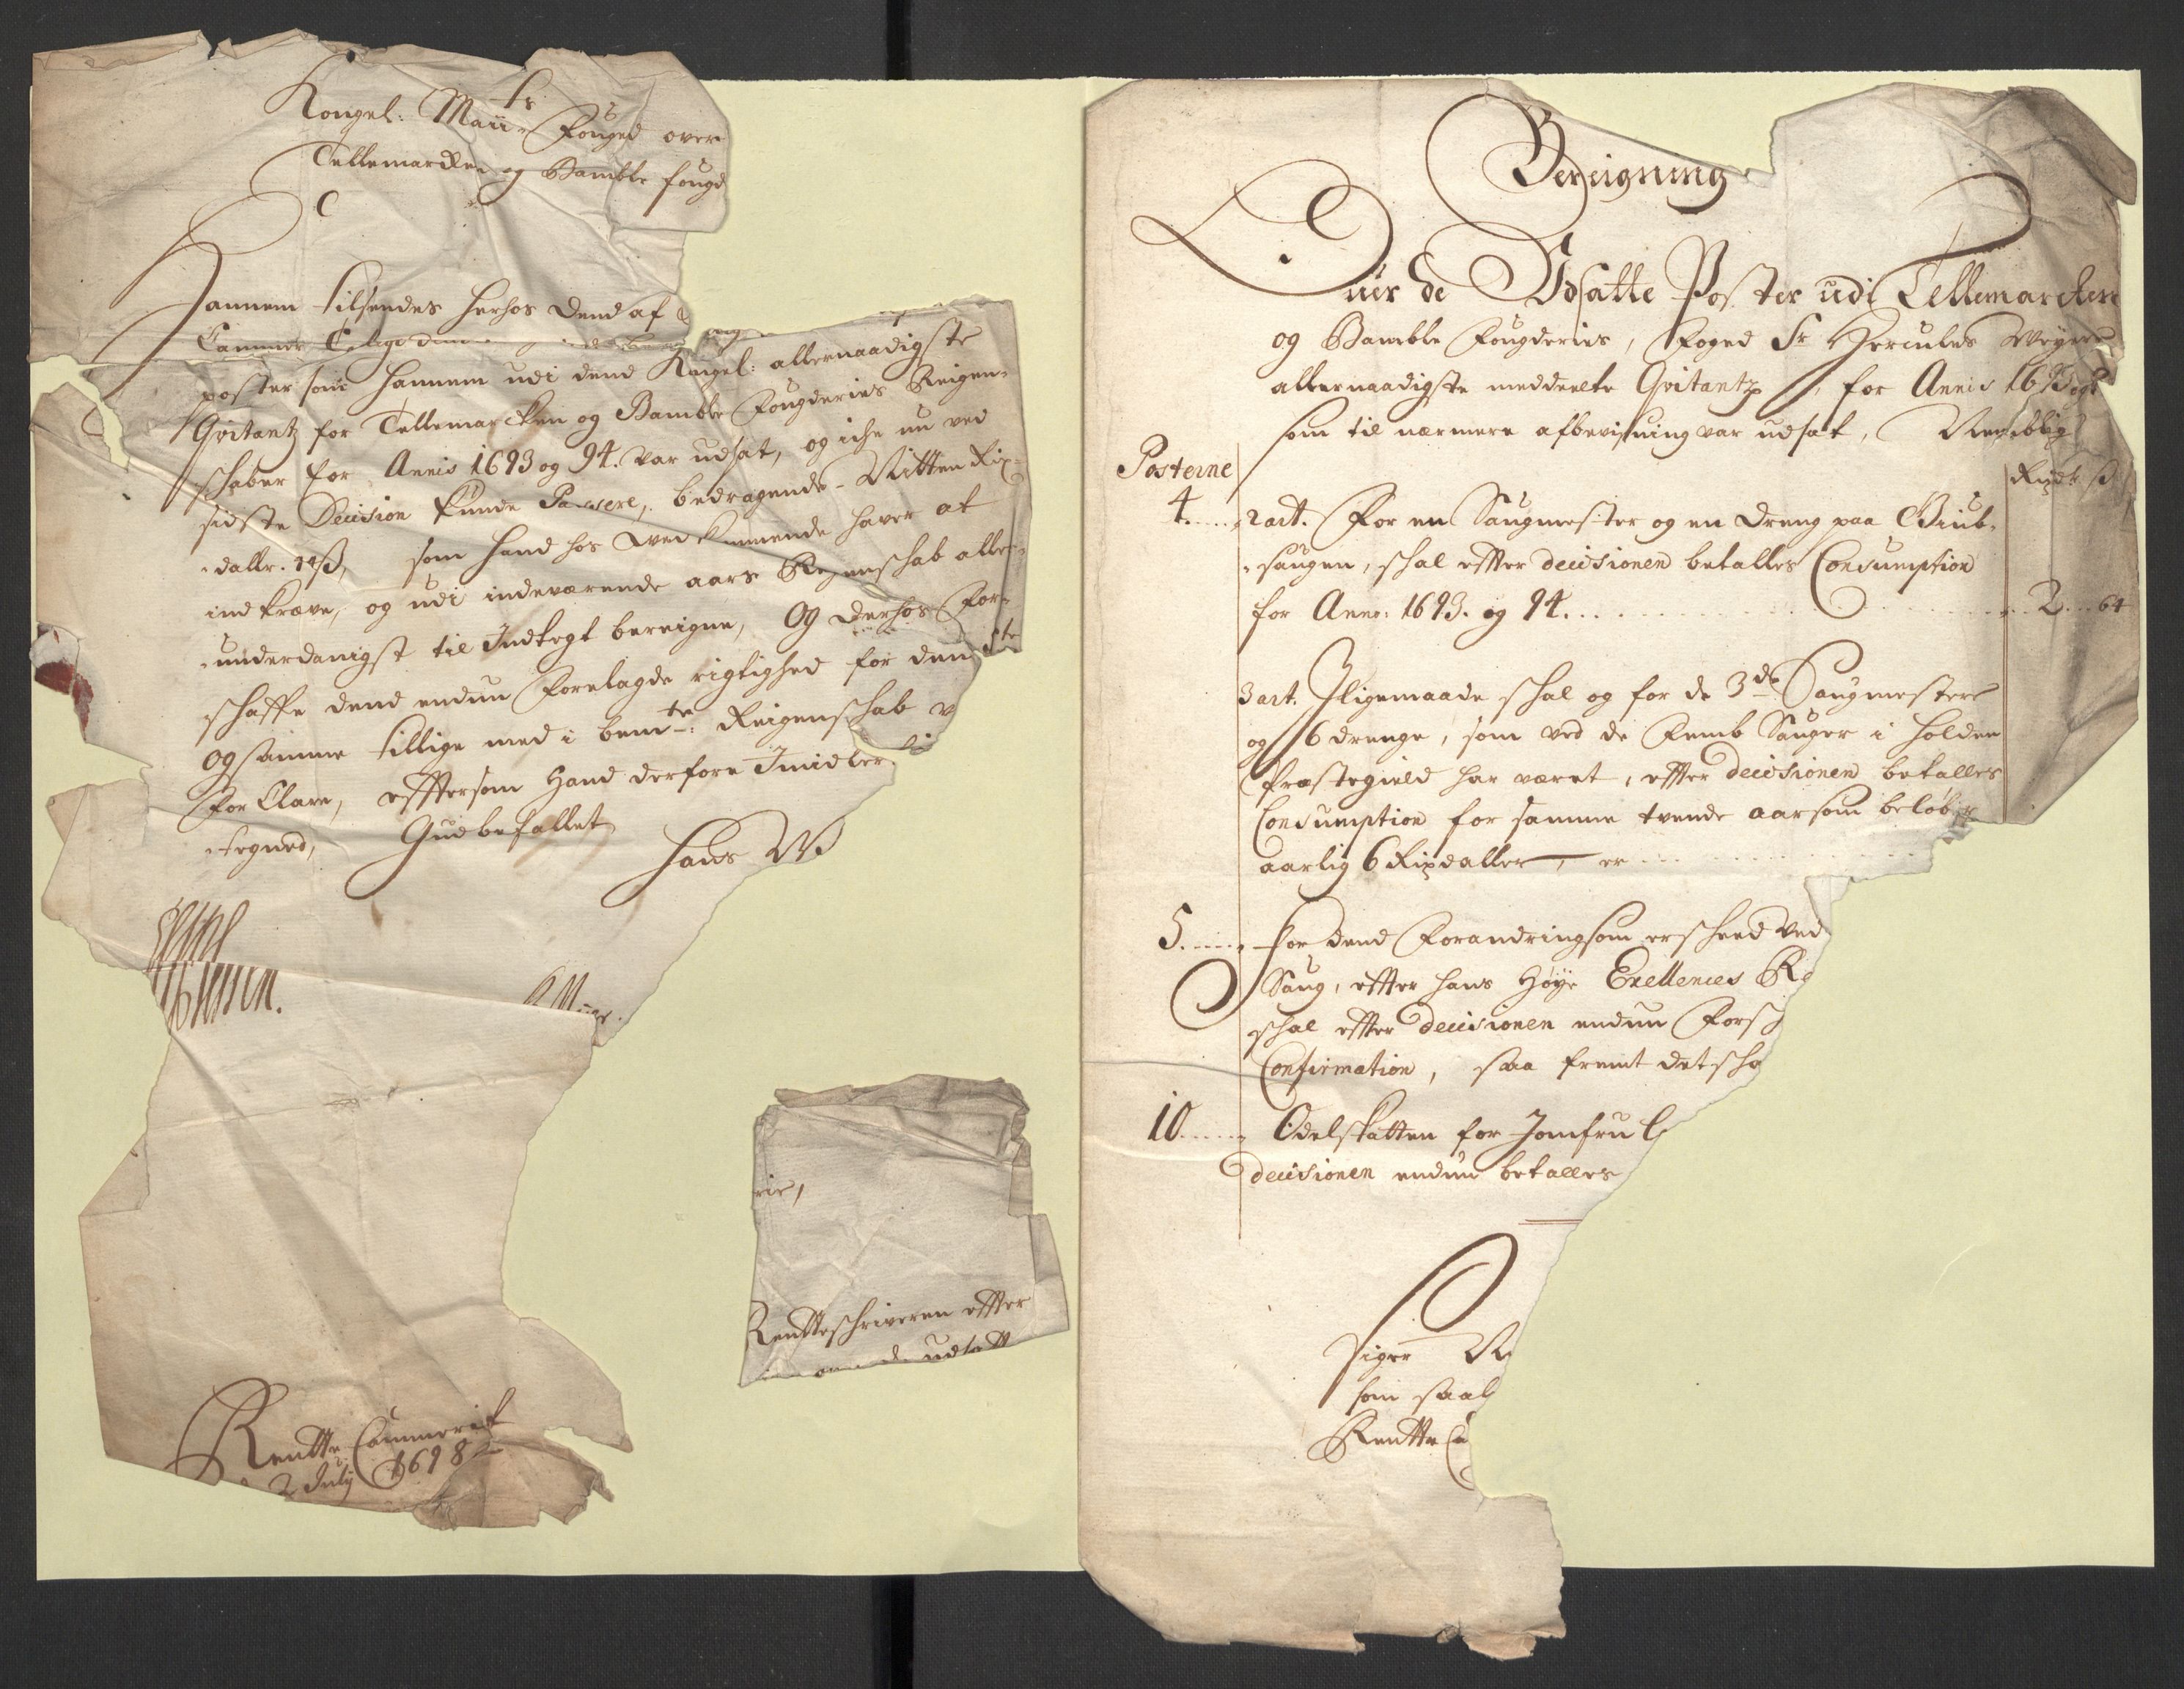 Kongel: Maits Fouged over
Tellemarcken og Bamble fougd
Hannem tilsendes herhos dend af
Cammer
poster som hannem udi dend Kongel: allernaadigste
Qvitantz for Tellemarcken og Bamble Fougderies Reigen-
schaber for Annis 1693 og 94. var udsat, og iche nu ved
sidste Decision kunde Passere, bedragende - Nitten Rix-
daller. 14 ß, som hand hos vedkommende haver at
indkræve, og udi indeværende aars Regenschab aller-
underdanigst til Indtegt bereigne, Og derhos For-
schaffe dend endnu Forelagde rigtighed for den 5te
og samme tillige med i bemte: Reigenschab v
For Clare, efftersom Hand derfore Imidler
tegned, Gud befallet
Hans W
Müller.
Rentte Cammerit
d 2 July 1698
rie,
Rentteschriveren effter
udsatt
Bereigning
Over de Udsatte Poster udi Tellemarcken
og Bamble Fougderies, Foged Sr Hercules Weyer
allernaadigste meddeelte Qvitantz, for Annis 1693 og
som til nærmere afbevisning var udsat, Nemblig
Posterne
Rixdr ß
4. 2 art. For en Saugmester og en dreng paa Giub-
saugen, schal effter decisionen betalles Consumption
for Anno: 1693. og 94. 2 64
3 art. Iligemaade schal og for de 3de Saugmestere
og 6 drenge, som ved de Femb Sauger i Holden
Præstegield har været, effter decisionen betalles
Consumption for samme tvende aar som beløber
aarlig 6 Rixdaller, er
5. For dend Forandring som er scheed ved
Saug, effter hans Høye Exellences R
schal effter decisionen endnu Forsch
Confirmation, saa fremt det scha
10 Odelskatten for Jomfrul
decisionen endnu betalles
Siger N
som saal
Rentte Ca